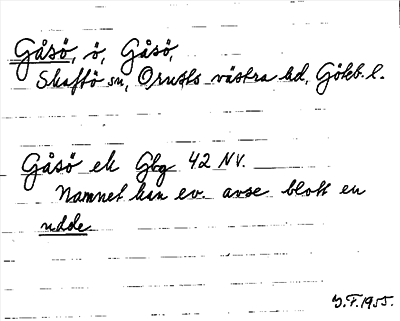 Gåsö, ö, Gåsö,
Skaftö sn, Orusts västra hd, Göteb. l.
Gåsö ek Gbg 42 NV.
Namnet kan ev. avse blott en
udde
J.F. 1955.